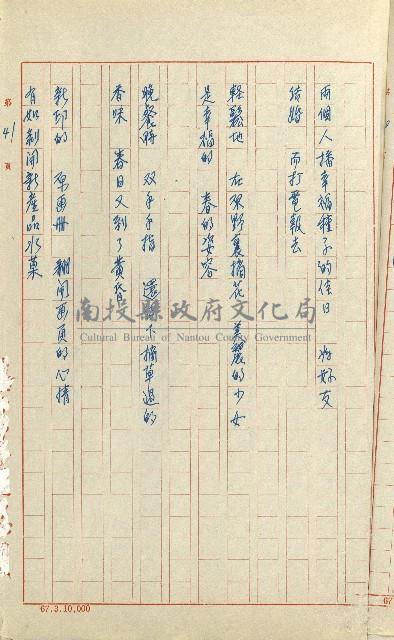 兩個人播幸福種子的佳日 為好友
結婚 而打電報去
輕鬆地 在原野裏摘花 美麗的少女
是幸福的 春的姿容
晚餐時 双手手指 還 下摘草過的
香味 春日又到了黃昏
新印的 原畫冊 翻開兩頁的心情
有如剝開新產品水菓
第 41 頁
南投縣政府文化局
Cultural Bureau of Nantou County Government
67.3.10,000
67